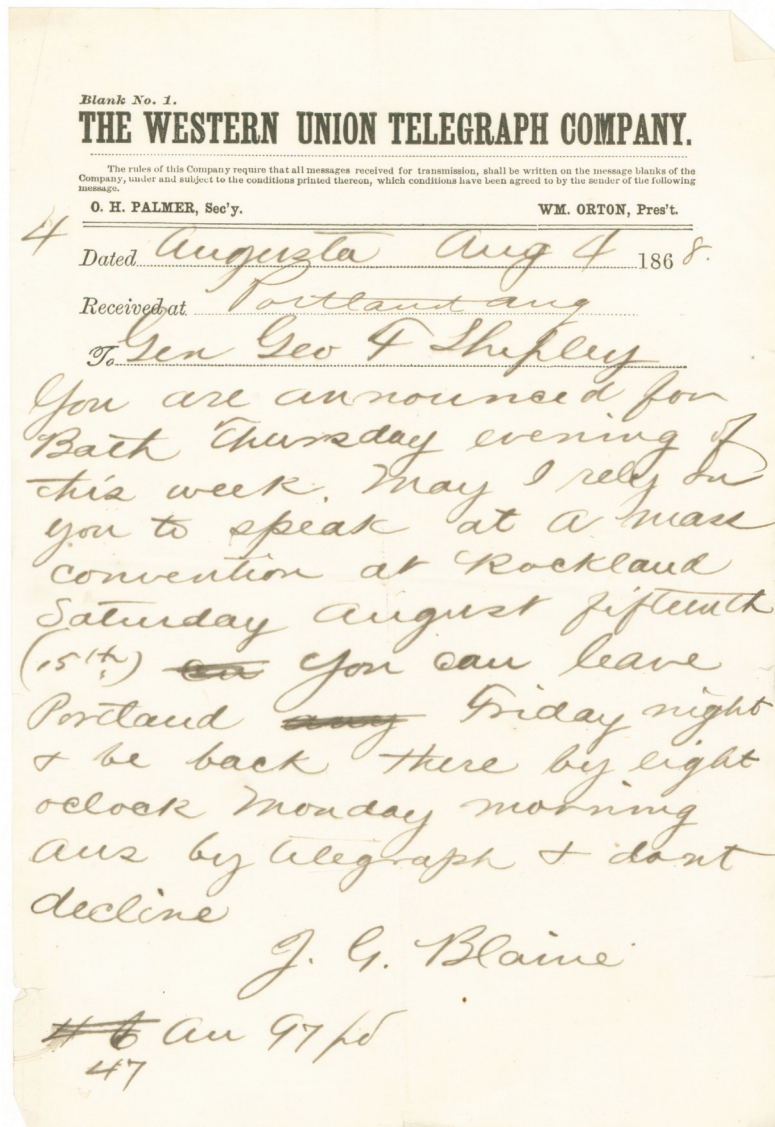 Blank No. 1.
THE WESTERN UNION TELEGRAPH COMPANY.
The rules of this Company require that all messages received for transmission, shall be written on the message blanks of the
Company, under and subject to the conditions printed thereon, which conditions have been agreed to by the sender of the following
message.
O. H. PALMER, Sec'y. WM. ORTON, Pres't.
4
Dated Augusta Aug 4 1868.
Received at Portland Aug
To Gen Geo F Shepley
You are announced for
Bath Thursday evening of
this week. May I rely on
you to speak at a mass
convention at Rockland
Saturday August fifteenth
(15th) You can leave
Portland Friday night
& be back there by eight
oclock Monday morning
Ans by telegraph & dont
decline
J. G. Blaine
97 pd
47